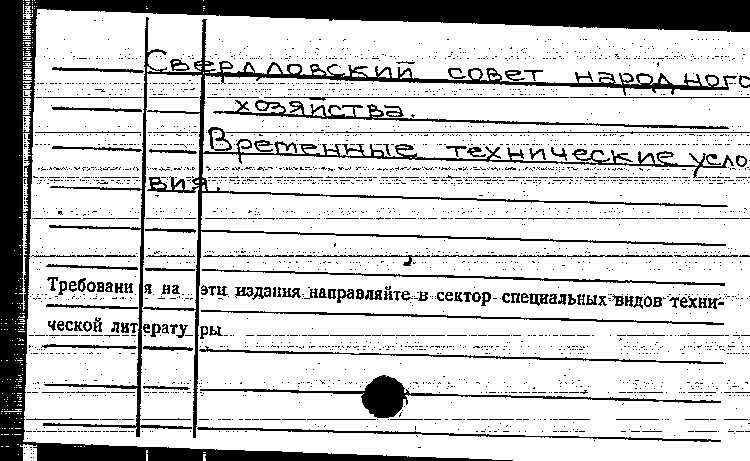 Свердловский совет народного
хозяйства.
Временные технические усло
вия.
Требования на эти издания направляйте в сектор специальных видов техни-
ческой литературы